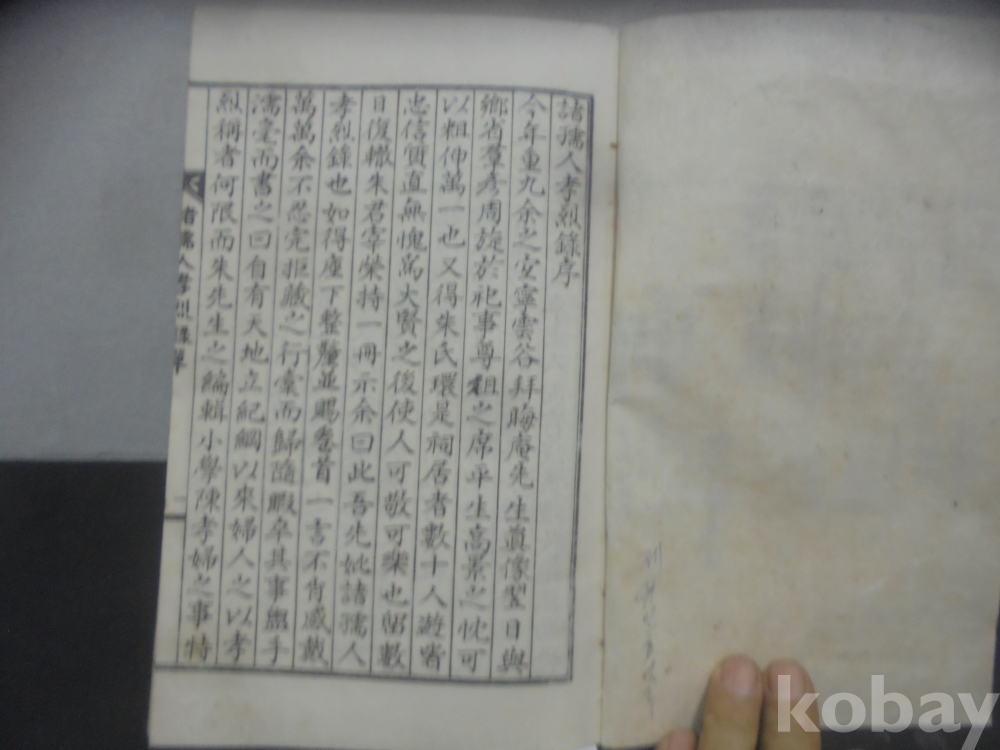 諸孺人孝烈錄序
今年重九余之安靈雲谷拜晦庵先生眞像翌日與
鄉省羣彥周旋於祀事尊祖之席平生高景之忱可
以粗伸萬一也又得朱氏環是祠居者數十人遊皆
忠信質直無愧爲大賢之後使人可敬可樂也留數
日復轍朱君宰榮持一冊示余曰此吾先妣諸孺人
孝烈錄也如得座下整釐並賜卷首一言不肖感戴
萬萬余不忍完拒藏之行槖而歸隨暇卒其事盥手
濡毫而書之曰自有天地立紀綱以來婦人之以孝
烈稱者何限而朱先生之編輯小學陳孝婦之事特
諸孺人孝烈錄單
kobay